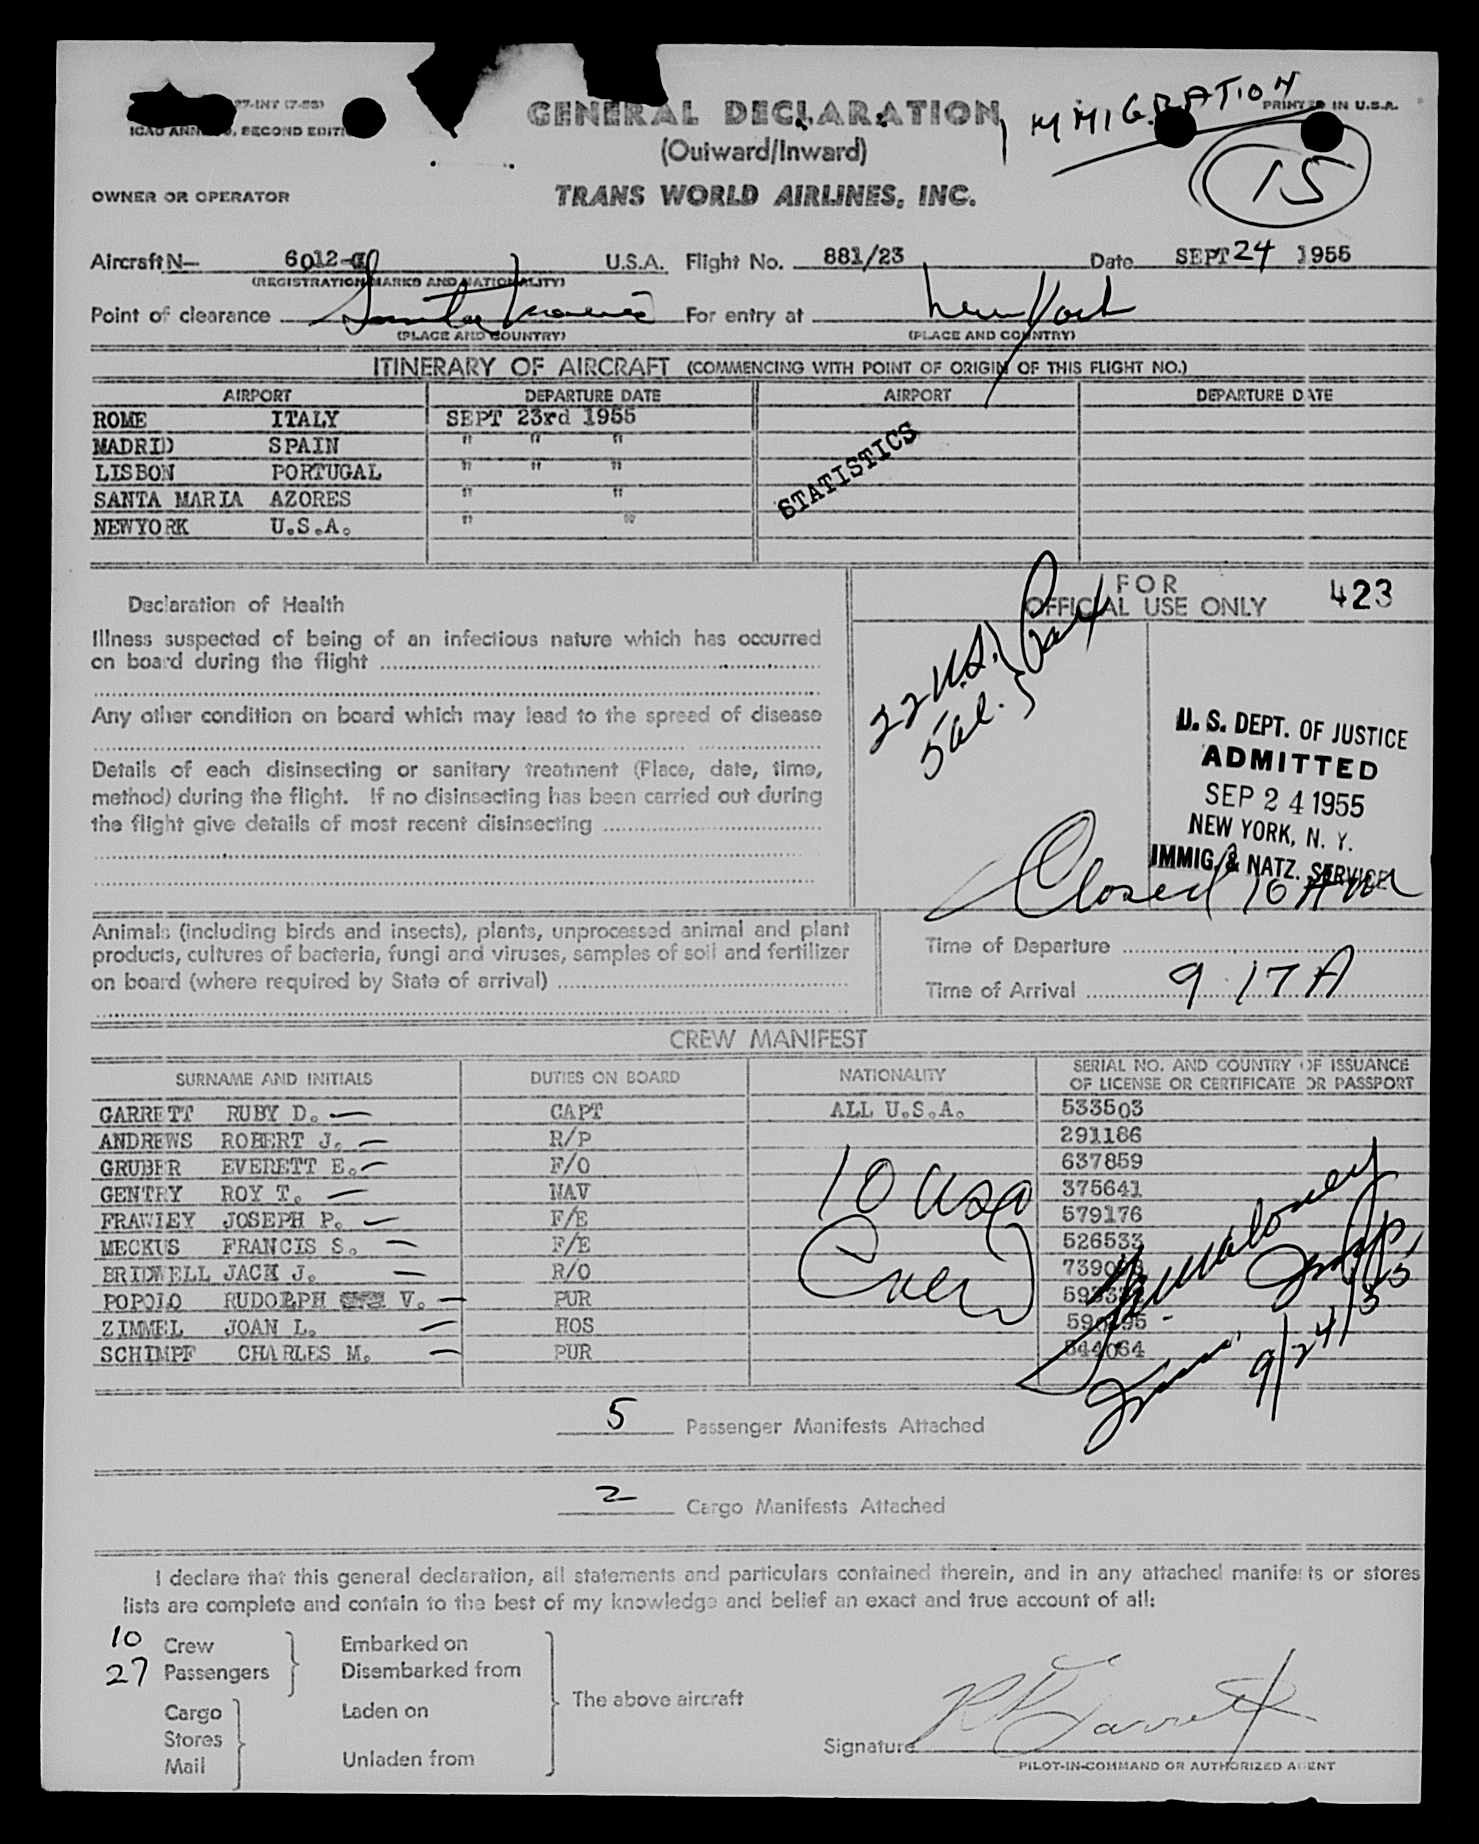 27-INT (7-55)
ICAO ANNEX 9, SECOND EDITI
GENERAL DECLARATION
(Outward/Inward)
IMMIGRATION
PRINTED IN U.S.A.
15
OWNER OR OPERATOR
TRANS WORLD AIRLINES, INC.
Aircraft N— 6012-C U.S.A. Flight No. 881/23 Date SEPT 24 1955
(REGISTRATION MARKS AND NATIONALITY)
Point of clearance Santa Maria For entry at New York
(PLACE AND COUNTRY) (PLACE AND COUNTRY)
ITINERARY OF AIRCRAFT (COMMENCING WITH POINT OF ORIGIN OF THIS FLIGHT NO.)
AIRPORT DEPARTURE DATE AIRPORT DEPARTURE DATE
ROME ITALY SEPT 23rd 1955
MADRID SPAIN " " "
LISBON PORTUGAL " " "
SANTA MARIA AZORES " "
NEWYORK U.S.A. " "
STATISTICS
Declaration of Health
Illness suspected of being of an infectious nature which has occurred
on board during the flight
Any other condition on board which may lead to the spread of disease
Details of each disinsecting or sanitary treatment (Place, date, time,
method) during the flight. If no disinsecting has been carried out during
the flight give details of most recent disinsecting
FOR
OFFICIAL USE ONLY 423
22 U.S.
5 al.
U. S. DEPT. OF JUSTICE
ADMITTED
SEP 24 1955
NEW YORK, N. Y.
IMMIG. & NATZ. SERVICE
Closed 10 AM
Animals (including birds and insects), plants, unprocessed animal and plant
products, cultures of bacteria, fungi and viruses, samples of soil and fertilizer
on board (where required by State of arrival)
Time of Departure
Time of Arrival 9 17 A
CREW MANIFEST
SURNAME AND INITIALS DUTIES ON BOARD NATIONALITY SERIAL NO. AND COUNTRY OF ISSUANCE
OF LICENSE OR CERTIFICATE OR PASSPORT
GARRETT RUBY D. — CAPT ALL U.S.A. 533503
ANDREWS ROBERT J. — R/P 291186
GRUBER EVERETT E. — F/O 637859
GENTRY ROY T. — NAV 375641
FRAWLEY JOSEPH P. — F/E 579176
MECKUS FRANCIS S. — F/E 526533
BRIDWELL JACK J. — R/O
POPOLO RUDOLPH V. — PUR
ZIMMEL JOAN L. — HOS
SCHIMPF CHARLES M. — PUR 544064
10 USA
Crew
9/24/55
5 Passenger Manifests Attached
2 Cargo Manifests Attached
I declare that this general declaration, all statements and particulars contained therein, and in any attached manifests or stores
lists are complete and contain to the best of my knowledge and belief an exact and true account of all:
10 Crew Embarked on
27 Passengers Disembarked from
The above aircraft
Cargo Laden on
Stores
Mail Unladen from
Signature R D Garrett
PILOT-IN-COMMAND OR AUTHORIZED AGENT